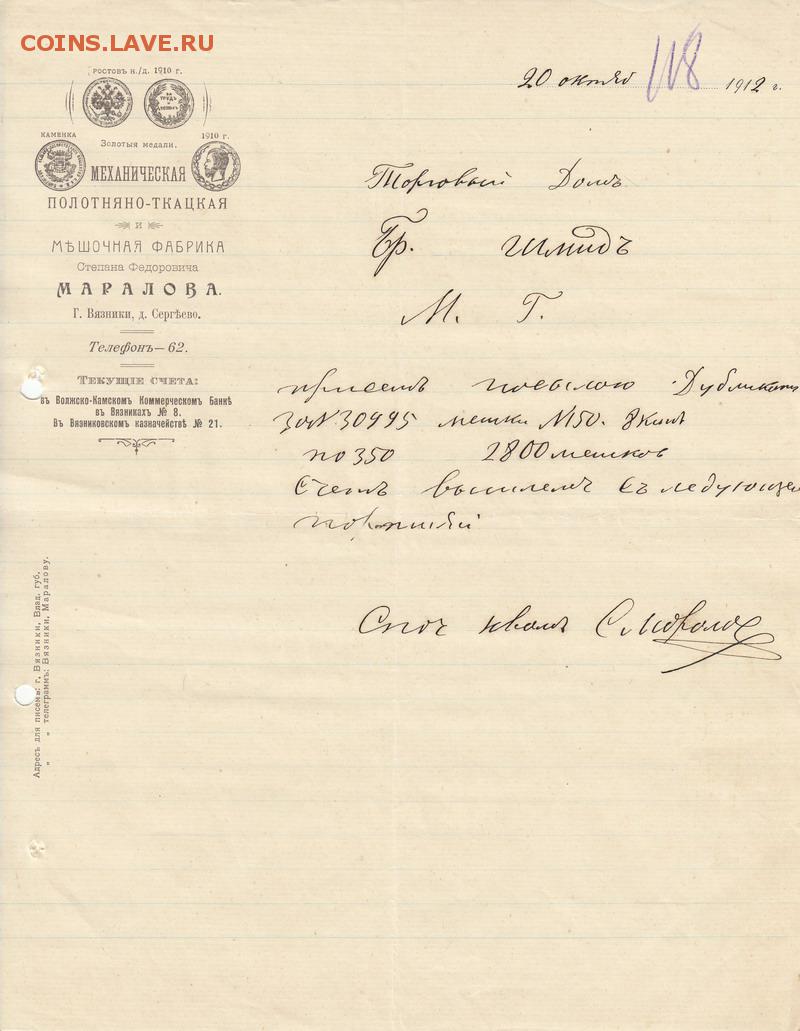 COINS.LAVE.RU
РОСТОВЪ Н./Д. 1910 г.
КАМЕНКА
1910 г.
ЗА ТРУДЪ И
Золотыя медали.
МЕХАНИЧЕСКАЯ
ПОЛОТНЯНО-ТКАЦКАЯ
И
МѢШОЧНАЯ ФАБРИКА
Степана Федоровича
МАРАЛОВА.
Г. Вязники, д. Сергѣево.
Телефонъ—62.
ТЕКУЩІЕ СЧЕТА:
въ Волжско-Камскомъ Коммерческомъ Банкѣ
въ Вязникахъ № 8.
Въ Вязниковскомъ казначействѣ № 21.
Адресъ для писемъ: г. Вязники, Влад. губ.
„ „ телеграммъ: Вязники, Маралову.
20 октяб 1912 г.
118
Торговый Домъ
Бр. Шмидъ
М. Г.
присемъ посылаю Дубликатъ
за № 30995 мешки № 150. 8 кипъ
по 350 2800 мешковъ
Счетъ вышлемъ Съ ледующей
портией
С поч